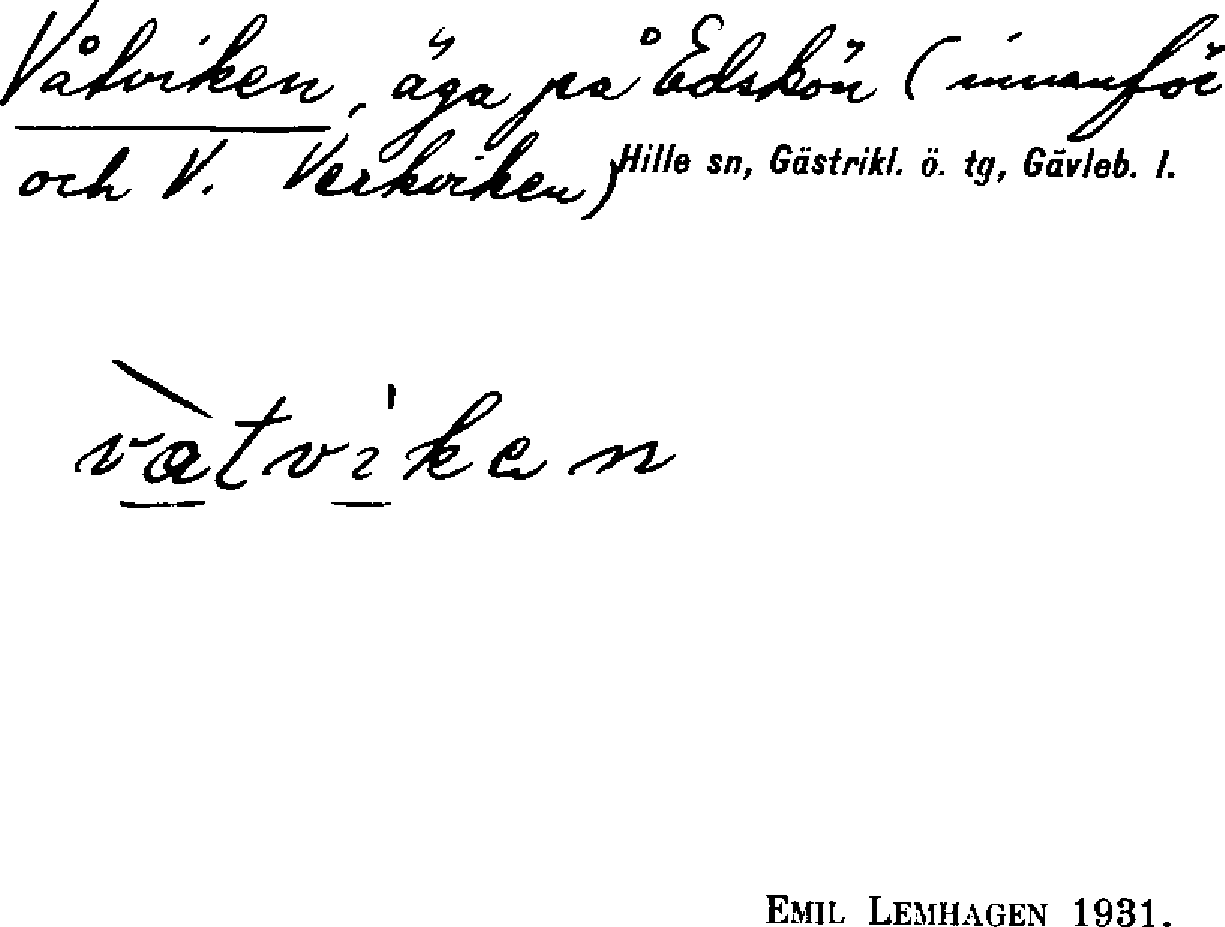 Våtviken, äga på Edskön (innanför
och V. Verkviken) Hille sn, Gästrikl. ö. tg, Gävleb. l.
vàtvi'ken
EMIL LEMHAGEN 1931.